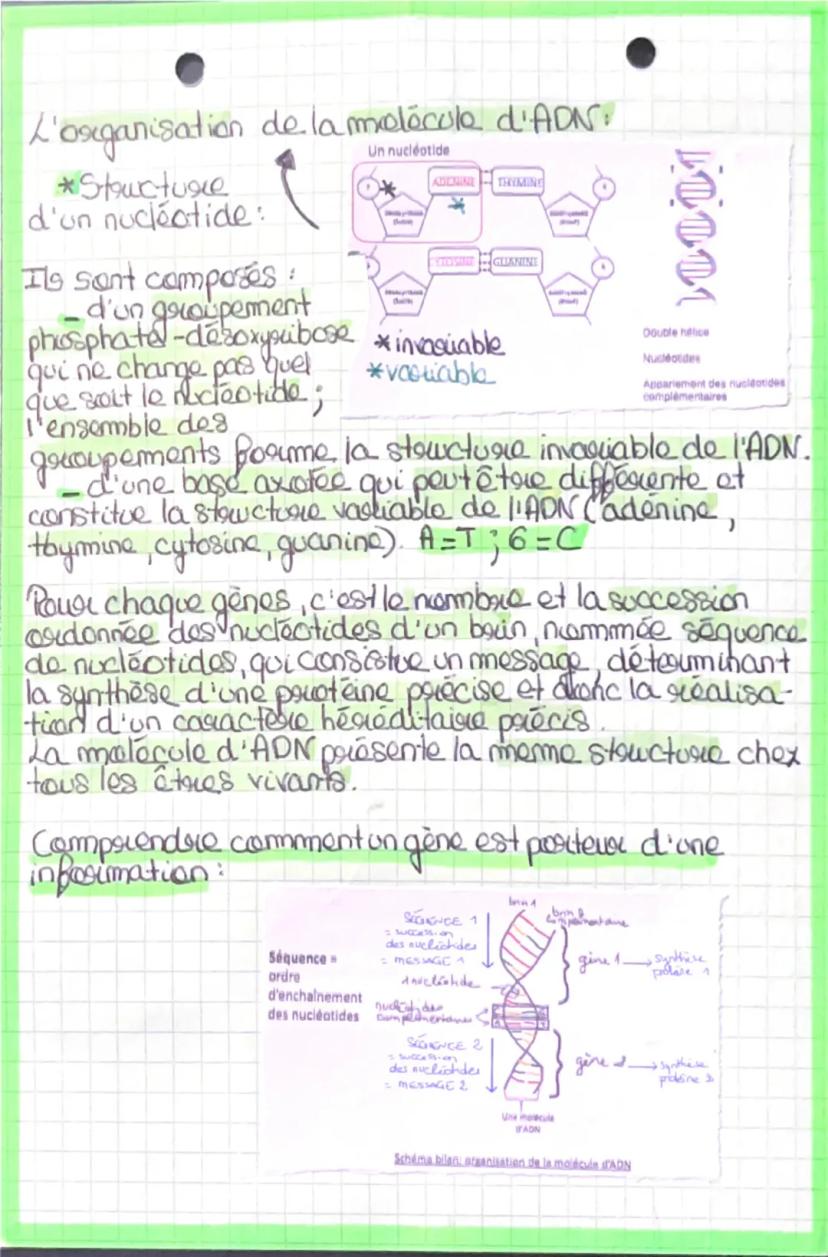 L'organisation de la molécule d'ADN:
* Structure
d'un nucléotide:
Un nucléotide
ADÉNINE
THYMINE
CYTOSINE
GUANINE
* invariable
* variable
Double hélice
Nucléotides
Appariement des nucléotides
complémentaires
Ils sont composés:
- d'un groupement
phosphate-désoxyribose
qui ne change pas quel
que soit le nucléotide;
l'ensemble des
groupements forme la structure invariable de l'ADN.
- d'une base axotée qui peut être différente et
constitue la structure variable de l'ADN (adénine,
thymine, cytosine, guanine). A=T; G=C
Pour chaque gènes, c'est le nombre et la succession
ordonnée des nucléotides d'un brin, nommée séquence
de nucléotides, qui consistue un message, déterminant
la synthèse d'une protéine précise et donc la réalisa-
tion d'un caractère héréditaire précis.
La molécule d'ADN présente la meme structure chez
tous les êtres vivants.
Comprendre comment un gène est porteur d'une
information:
Séquence =
ordre
d'enchaînement
des nucléotides
brin 1
brin 2
complémentaire
SÉQUENCE 1
= succession
des nucléotides
= MESSAGE 1
1 nucléotide
nucléotides
complémentaires
gène 1 → synthèse
protéine 1
SÉQUENCE 2
= succession
des nucléotides
= MESSAGE 2
gène 2 → synthèse
protéine 2
Une molécule
d'ADN
Schéma bilan: organisation de la molécule d'ADN